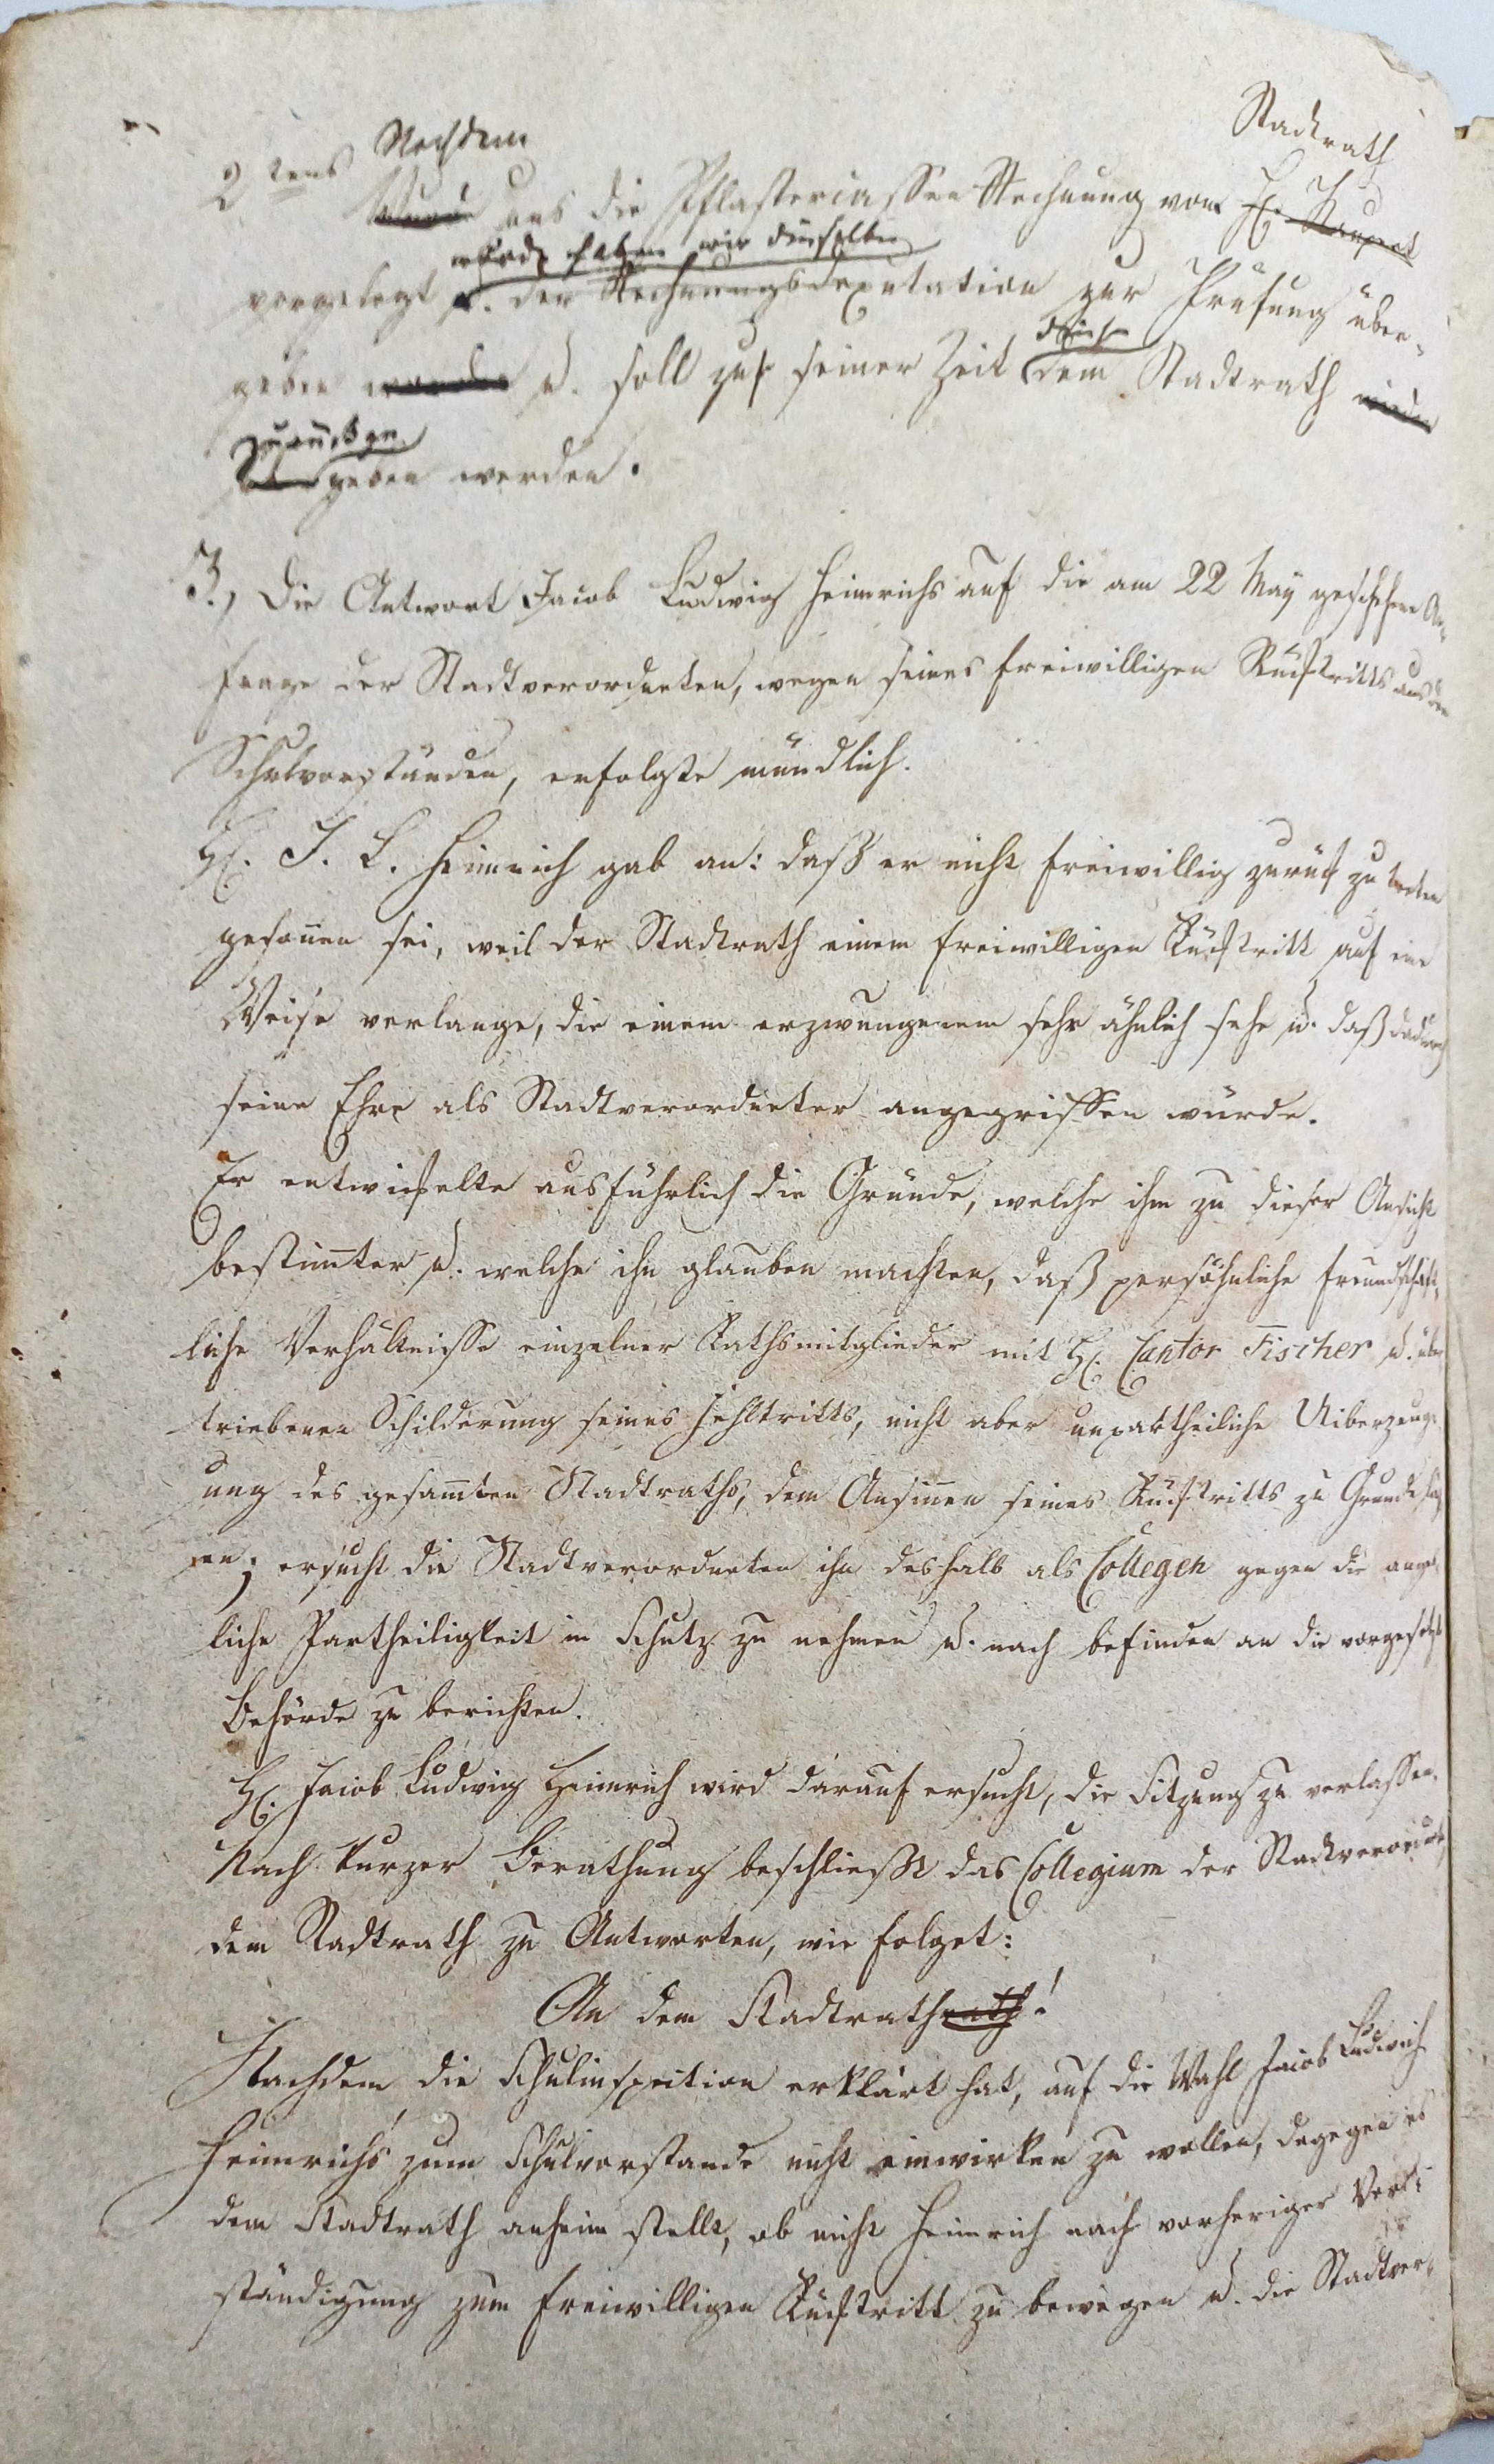 Stadtrath
2tens Nachdem
Wurde uns die Pflastercassen Rechnung vom H.
worde haben wir dieselbe
vorgelegt u. der Rechnungsdeputation zur Prüfung über-
geben worden u. soll zu seiner Zeit dem Stadtrath wieder
zurückge
geben werden.
3., Die Antwort Jacob Ludwig Heimrichs auf die am 22 May geschehene An-
frage der Stadtverordneten, wegen seines freiwilligen Rücktritts aus den
Schulvorständen, erfolgte mündlich.
H. J. L. Heimrich gab an: daß er nicht freiwillig zurück zu treten
gesonnen sei, weil der Stadtrath einem freiwilligen Rücktritt auf eine
Weise verlange, die einem erzwungenem sehr ähnlich sehe u. daß dadurch
seine Ehre als Stadtverordneter angegriffen würde.
Er entwickelte ausführlich die Gründe, welche ihm zu dieser Ansicht
bestimter u. welche ihn glauben machten, daß persöhnliche freundschaft-
liche Verhältnisse einzelner Rathsmitglieder mit H. Cantor Fischer u. über
triebenen Schilderung seines Fehltritts, nicht aber unpartheiliche Uiberzeug-
ung des gesamten Stadtraths, dem Ansinnen seines Rücktritts zu Grunde läg
en; ersucht die Stadtverordneten ihn deshalb als Collegen gegen die angeb-
liche Partheiligkeit in Schutz zu nehmen u. nach befinden an die vorgesetzte
Behörde zu berichten.
H. Jacob Ludwig Heimrich wird darauf ersucht, die Sitzung zu verlassen.
Nach kurzer Berathung beschließt das Collegium der Stadtverordneten
dem Stadtrath zu Antworten, wie folget:
An dem Stadtrathrath!
Nachdem die Schulinspection erklärt hat, auf die Wahl Jacob Ludwich
Heimrichs zum Schulvorstande nicht einwirken zu wollen, dagegen es
dem Stadtrath anheim stellt, ob nicht Heimrich nach vorheriger Ver-
ständigung zum freiwilligen Rücktritt zu bewegen u. die Stadtver-